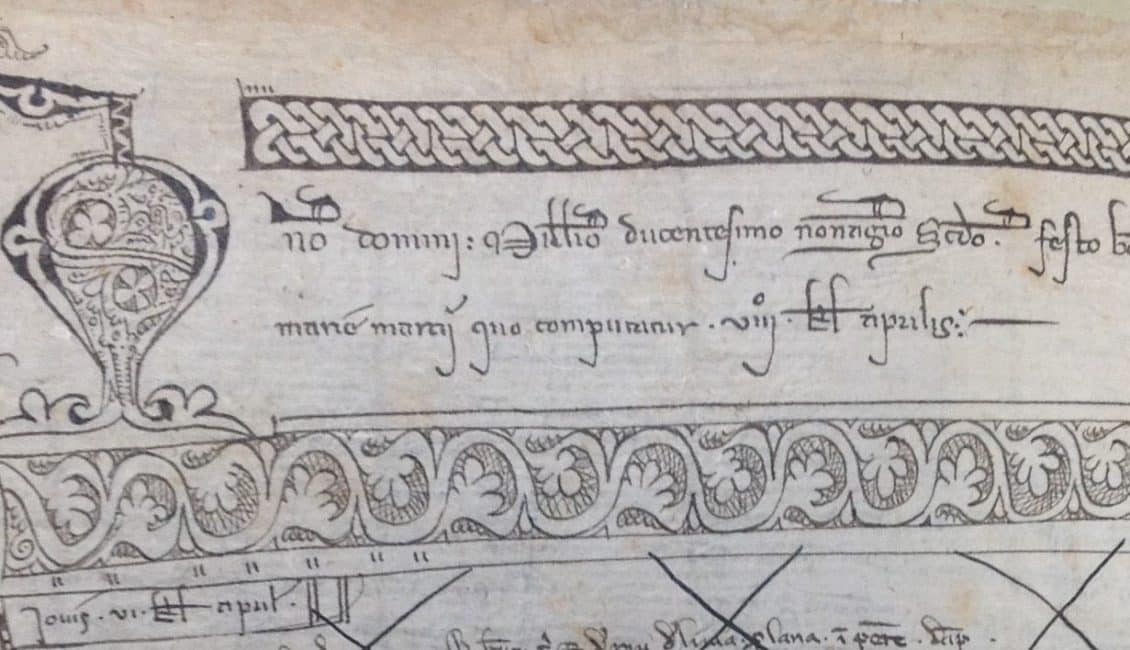 no domini : Millio ducentesimo nonagio Scdo . festo b
marie marcij quo computatur . viiij . kl aprilis :
Jouis . vi . kl april .
plana .